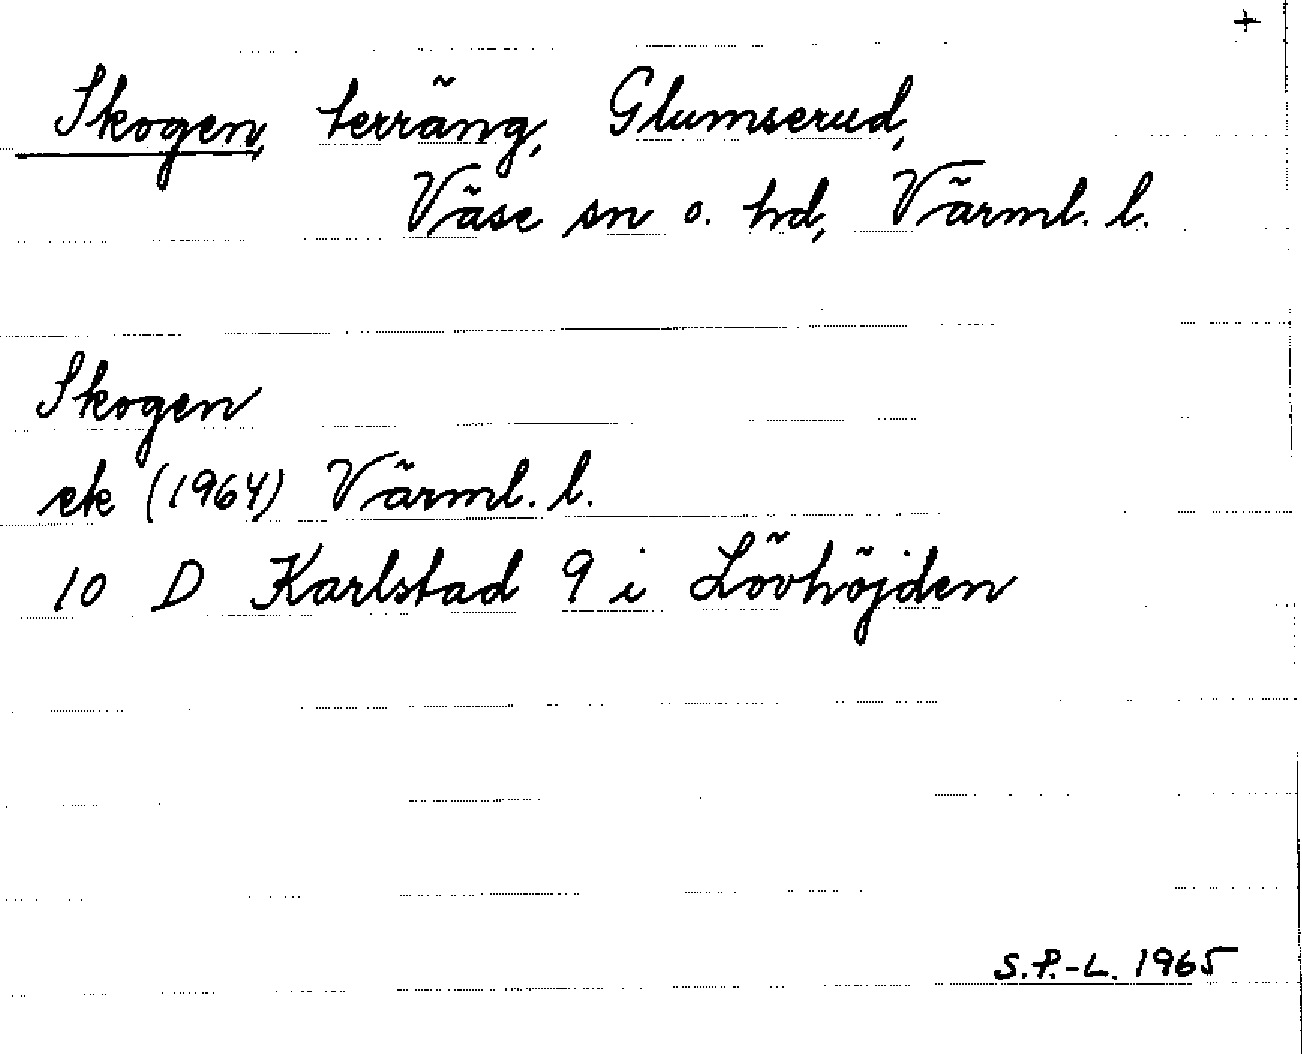 +
Skogen, terräng, Glumserud,
Väse sn o. hd, Värml. l.
Skogen
ek (1964) Värml. l.
10 D Karlstad 9 i Lövhöjden
S.P.-L. 1965